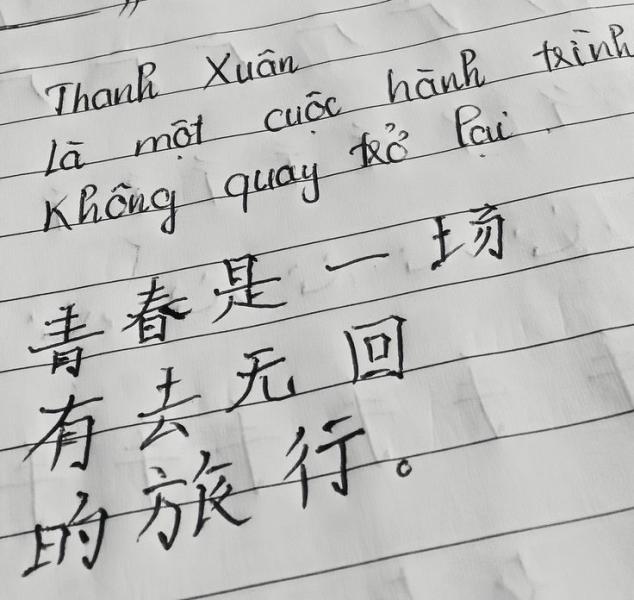 Thanh Xuân
Là một cuộc hành trình
Không quay trở lại.
青春是一场
有去无回
的旅行。